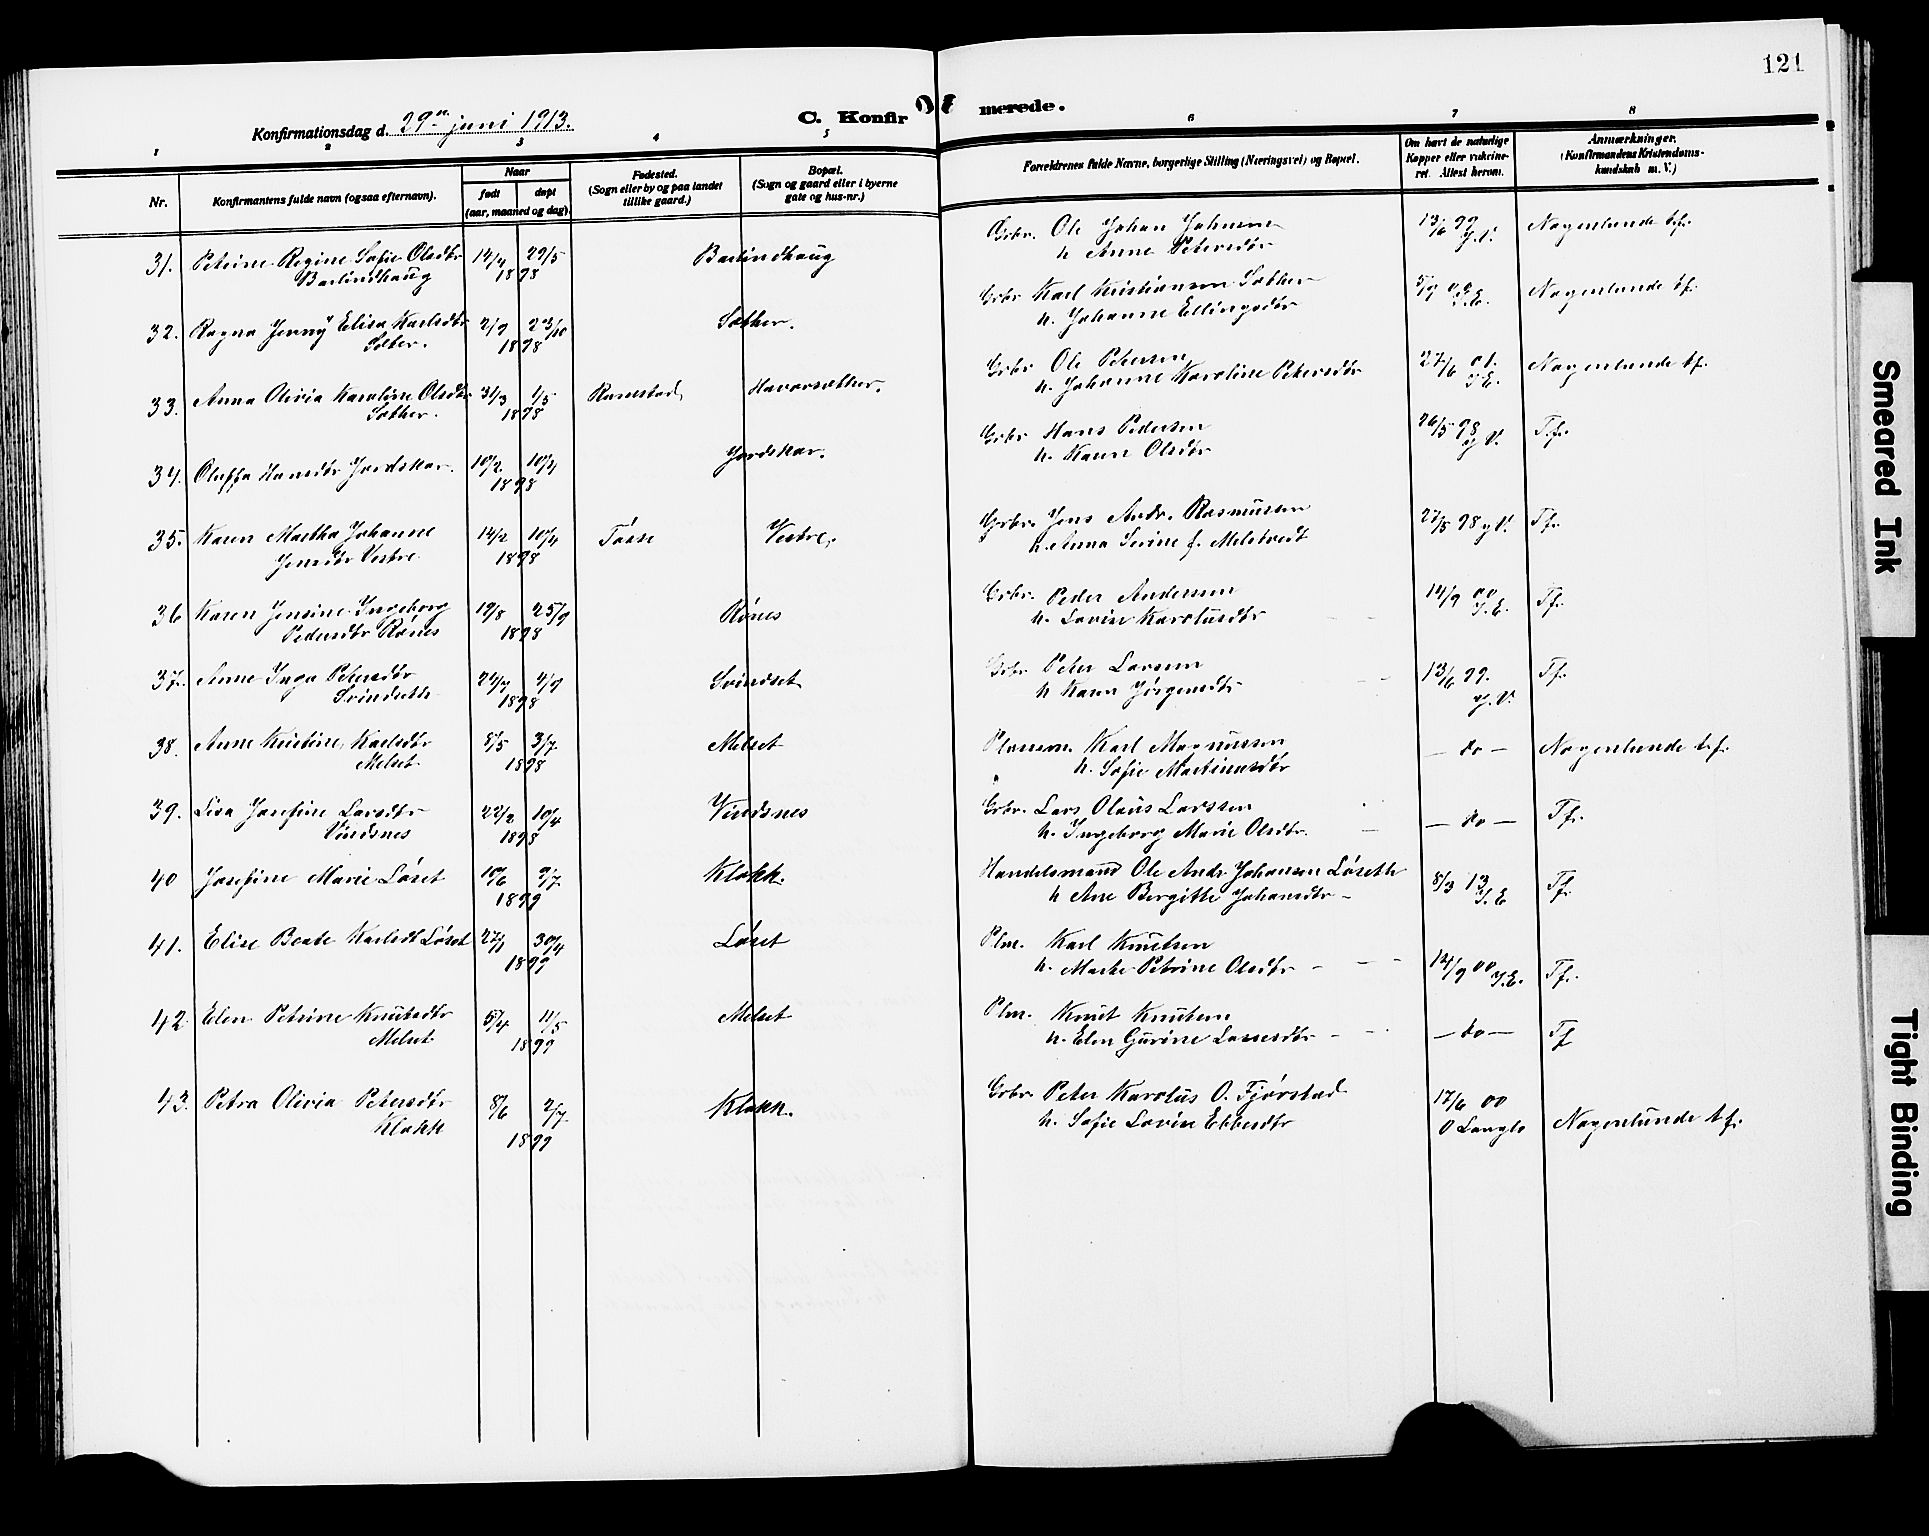 121
Konfirmationsdag d. 29de juni 1913.
C. Konfirmerede.
1 2 3 4 5 6 7 8
Nr.
Konfirmantens fulde navn (ogsaa efternavn).
Naar
født døpt
(aar, maaned og dag).
Fødested.
(Sogn eller by og paa landet
tillike gaard.)
Bopæl.
(Sogn og gaard eller i byerne
gate og hus-nr.)
Forældrenes fulde Navne, borgerlige Stilling (Næringsvei) og Bopæl.
Om havt de naturlige
Kopper eller vaksine-
ret. Attest herom.
Anmærkninger.
(Konfirmandens Kristendoms-
kundskab m. V.)
31. Petrine Regine Sofie Olsdtr 14/4 29/5 Barlindhaug Grbr. Ole Johan Johnsen 13/6 99 Nogenlunde t.f.
Barlindhaug 1898 h. Anne Petersdtr J.V.
32. Ragna Jenny Elisa Karlsdtr 2/9 23/10 Sæther. Grbr Karl Kristiansen Sæther 5/9 00 Nogenlunde t.f.
Sæter. 1898 h. Johanne Ellingsdtr J.E.
33. Anna Olivia Karoline Olsdtr 31/3 1/5 Ramstad, Havarsæther. Grbr Ole Petersen 27/6 01. Nogenlunde t.f.
Sæther. 1898 h. Johanne Karoline Petersdtr J.E.
34. Oluffa Hansdtr Jordskar. 10/2 10/4 Jordskar. Grbr Hans Pedersen 26/5 98 T.f.
1898 h. Karen Olsdtr J.V.
35. Karen Martha Johanne 14/2 10/4 Tøsse Vestre, Grbr. Jens Andr. Rasmussen 27/5 98 J.V. T.f.
Jensdtr Vestre 1898 h. Anna Sevine f. Melstvedt
36 Karen Jensine Ingeborg 19/8 25/9 Rønes Grbr. Peder Andersen 14/9 00 T.f.
Pedersdtr Rønes 1898 h. Lovise Karolusdtr J.E.
37. Anne Inga Petersdtr 24/7 4/9 Svindset Grbr Peter Larsen 13/6 99. T.f.
Svindseth 1898 h Karen Jørgensdtr J.V.
38. Anne Kristine Karlsdtr 8/5 3/7 Melset Plassm. Karl Magnussen — do — Nogenlunde t.f.
Melset 1898 h. Sofie Martinusdtr
39. Lisa Josefine Larsdtr 22/2 10/4 Vindsnes Grbr. Lars Olaus Larssen — do — T.f.
Vindsnes 1898 h. Ingeborg Marie Olsdtr.
40 Josefine Marie Løset 10/6 9/7 Klokk. Handelsmand Ole Andr Johansen Løseth 8/3 13 T.f.
1899 h Ane Bergitte Johansdtr - J.E
41. Elise Beate Karlsdt Løset 27/1 30/4 Løset Plm. Karl Knutsen
1899 h. Marte Petrine Olsdtr - 14/9 00 J.E. T.f.
42 Elen Petrine Knutsdtr 5/4 11/5 Melset Plm. Knut Knutsen
Melset 1899 h. Elen Gurine Lassesdtr - — do — T.f
43. Petra Olivia Petersdtr 8/6 2/7 Klokk. Grbr. Peter Karolus O. Fjørstad 17/6 00
Klokk 1899 h. Sofie Lovise Ebbesdtr O Langlo Nogenlunde t.f.
Smeared Ink
Tight Binding